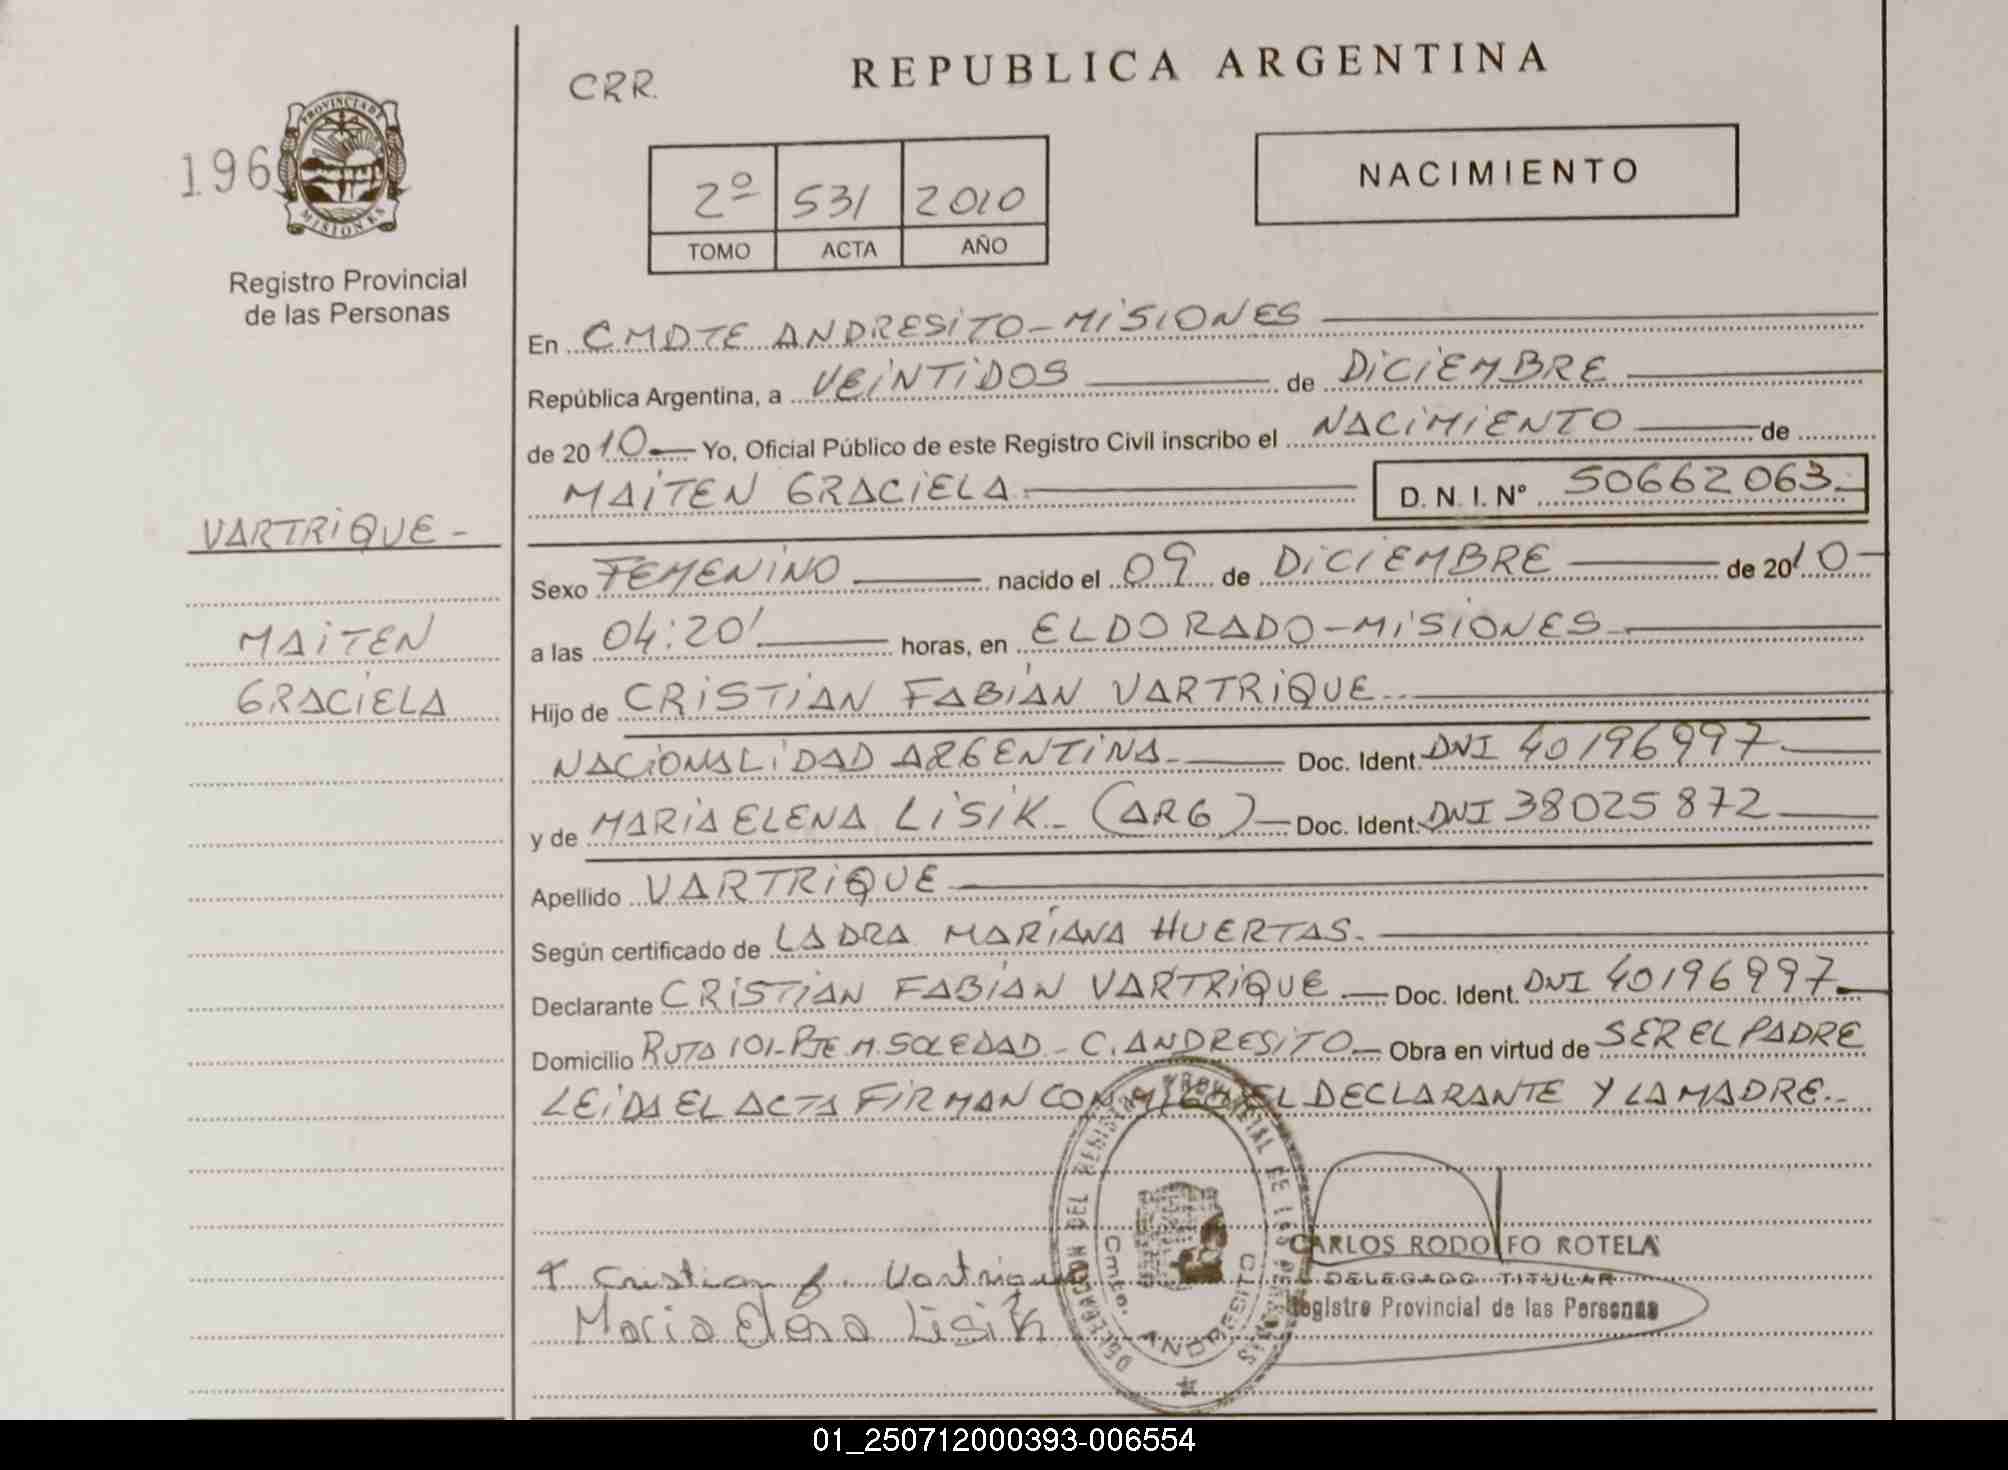 CRR.
REPUBLICA ARGENTINA
196
PROVINCIA DE
MISIONES
Registro Provincial
de las Personas
2º 531 2010
TOMO ACTA AÑO
NACIMIENTO
En CMDTE ANDRESITO - MISIONES
República Argentina, a VEINTIDOS de DICIEMBRE
de 2010 Yo, Oficial Público de este Registro Civil inscribo el NACIMIENTO de
MAITEN GRACIELA D. N. I. Nº 50662063
VARTRIQUE -
MAITEN
GRACIELA
Sexo FEMENINO nacido el 09 de DICIEMBRE de 2010
a las 04:20' horas, en ELDORADO - MISIONES
Hijo de CRISTIAN FABIÁN VARTRIQUE
NACIONALIDAD ARGENTINA Doc. Ident. DNI 40196997
y de MARIA ELENA LISIK - (ARG) Doc. Ident. DNI 38025872
Apellido VARTRIQUE
Según certificado de LA DRA MARÍANA HUERTAS.
Declarante CRISTIAN FABIÁN VARTRIQUE Doc. Ident. DNI 40196997
Domicilio RUTA 101 - PJE. M. SOLEDAD - C. ANDRESITO Obra en virtud de SER EL PADRE
LEIDA EL ACTA FIRMAN CONMIGO EL DECLARANTE Y LA MADRE.
DELEGACION DEL REGISTRO PROVINCIAL DE LAS PERSONAS
Cmte. ANDRESITO
Cristian f. Vartrique
Maria Elena Lisik
CARLOS RODOLFO ROTELA
DELEGADO TITULAR
Registro Provincial de las Personas
01_250712000393-006554